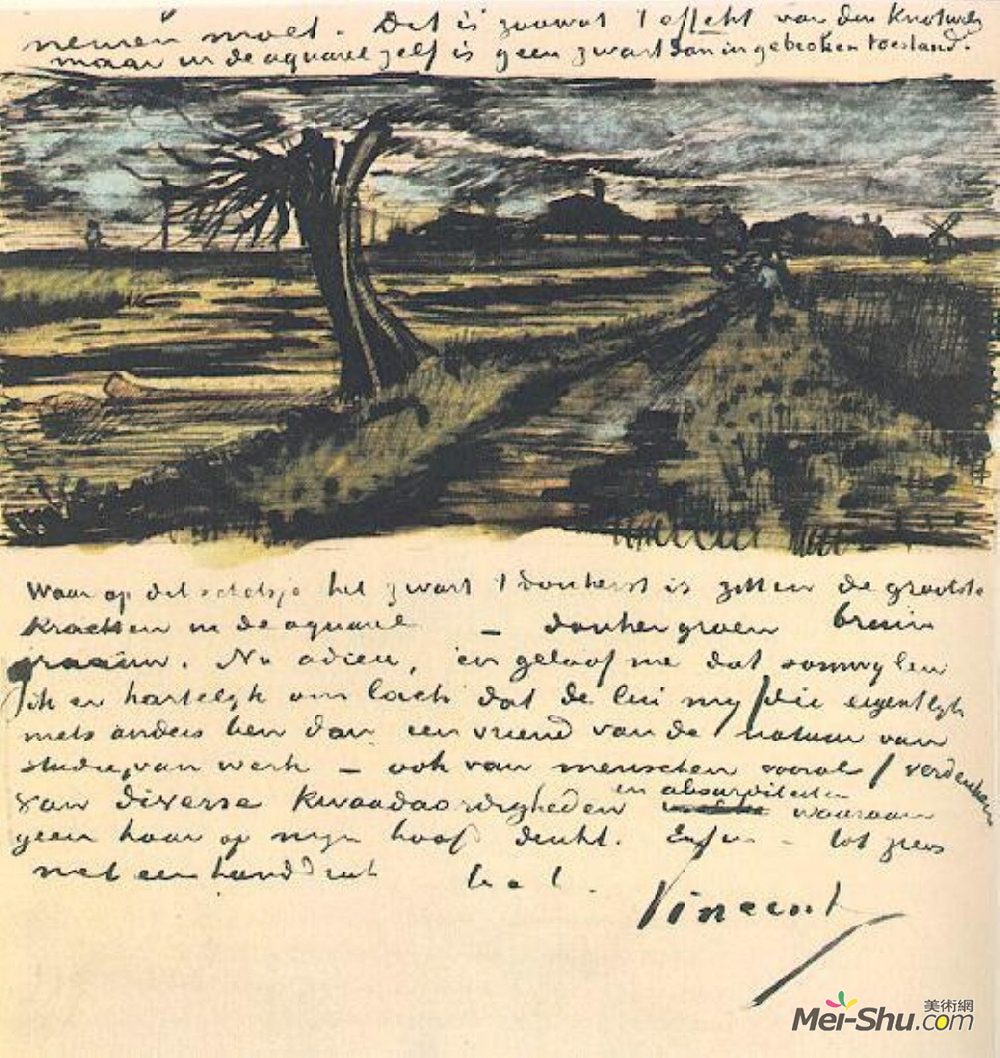 nemen moet. Dit is zoowat 't effekt van den Knotwilg
maar in de aquarel zelf is geen zwart dan in gebroken toestand.
Waar op dit schetsje het zwart 't donkerst is zitten de grootste
krachten in de aquarel – donkergroen bruin
graauw. Nu adieu, en geloof me dat somwylen
ik er hartelyk om lach dat de lui my / die eigentlyk
niets anders ben dan een vriend van de natuur van
studie, van werk – ook van menschen vooral / verdenken
van diverse kwaadaardigheden en absurditeiten waaraan
geen haar op myn hoofd denkt. Enfin – tot ziens
met een handdruk
Vincent
美術網
Mei-Shu.com